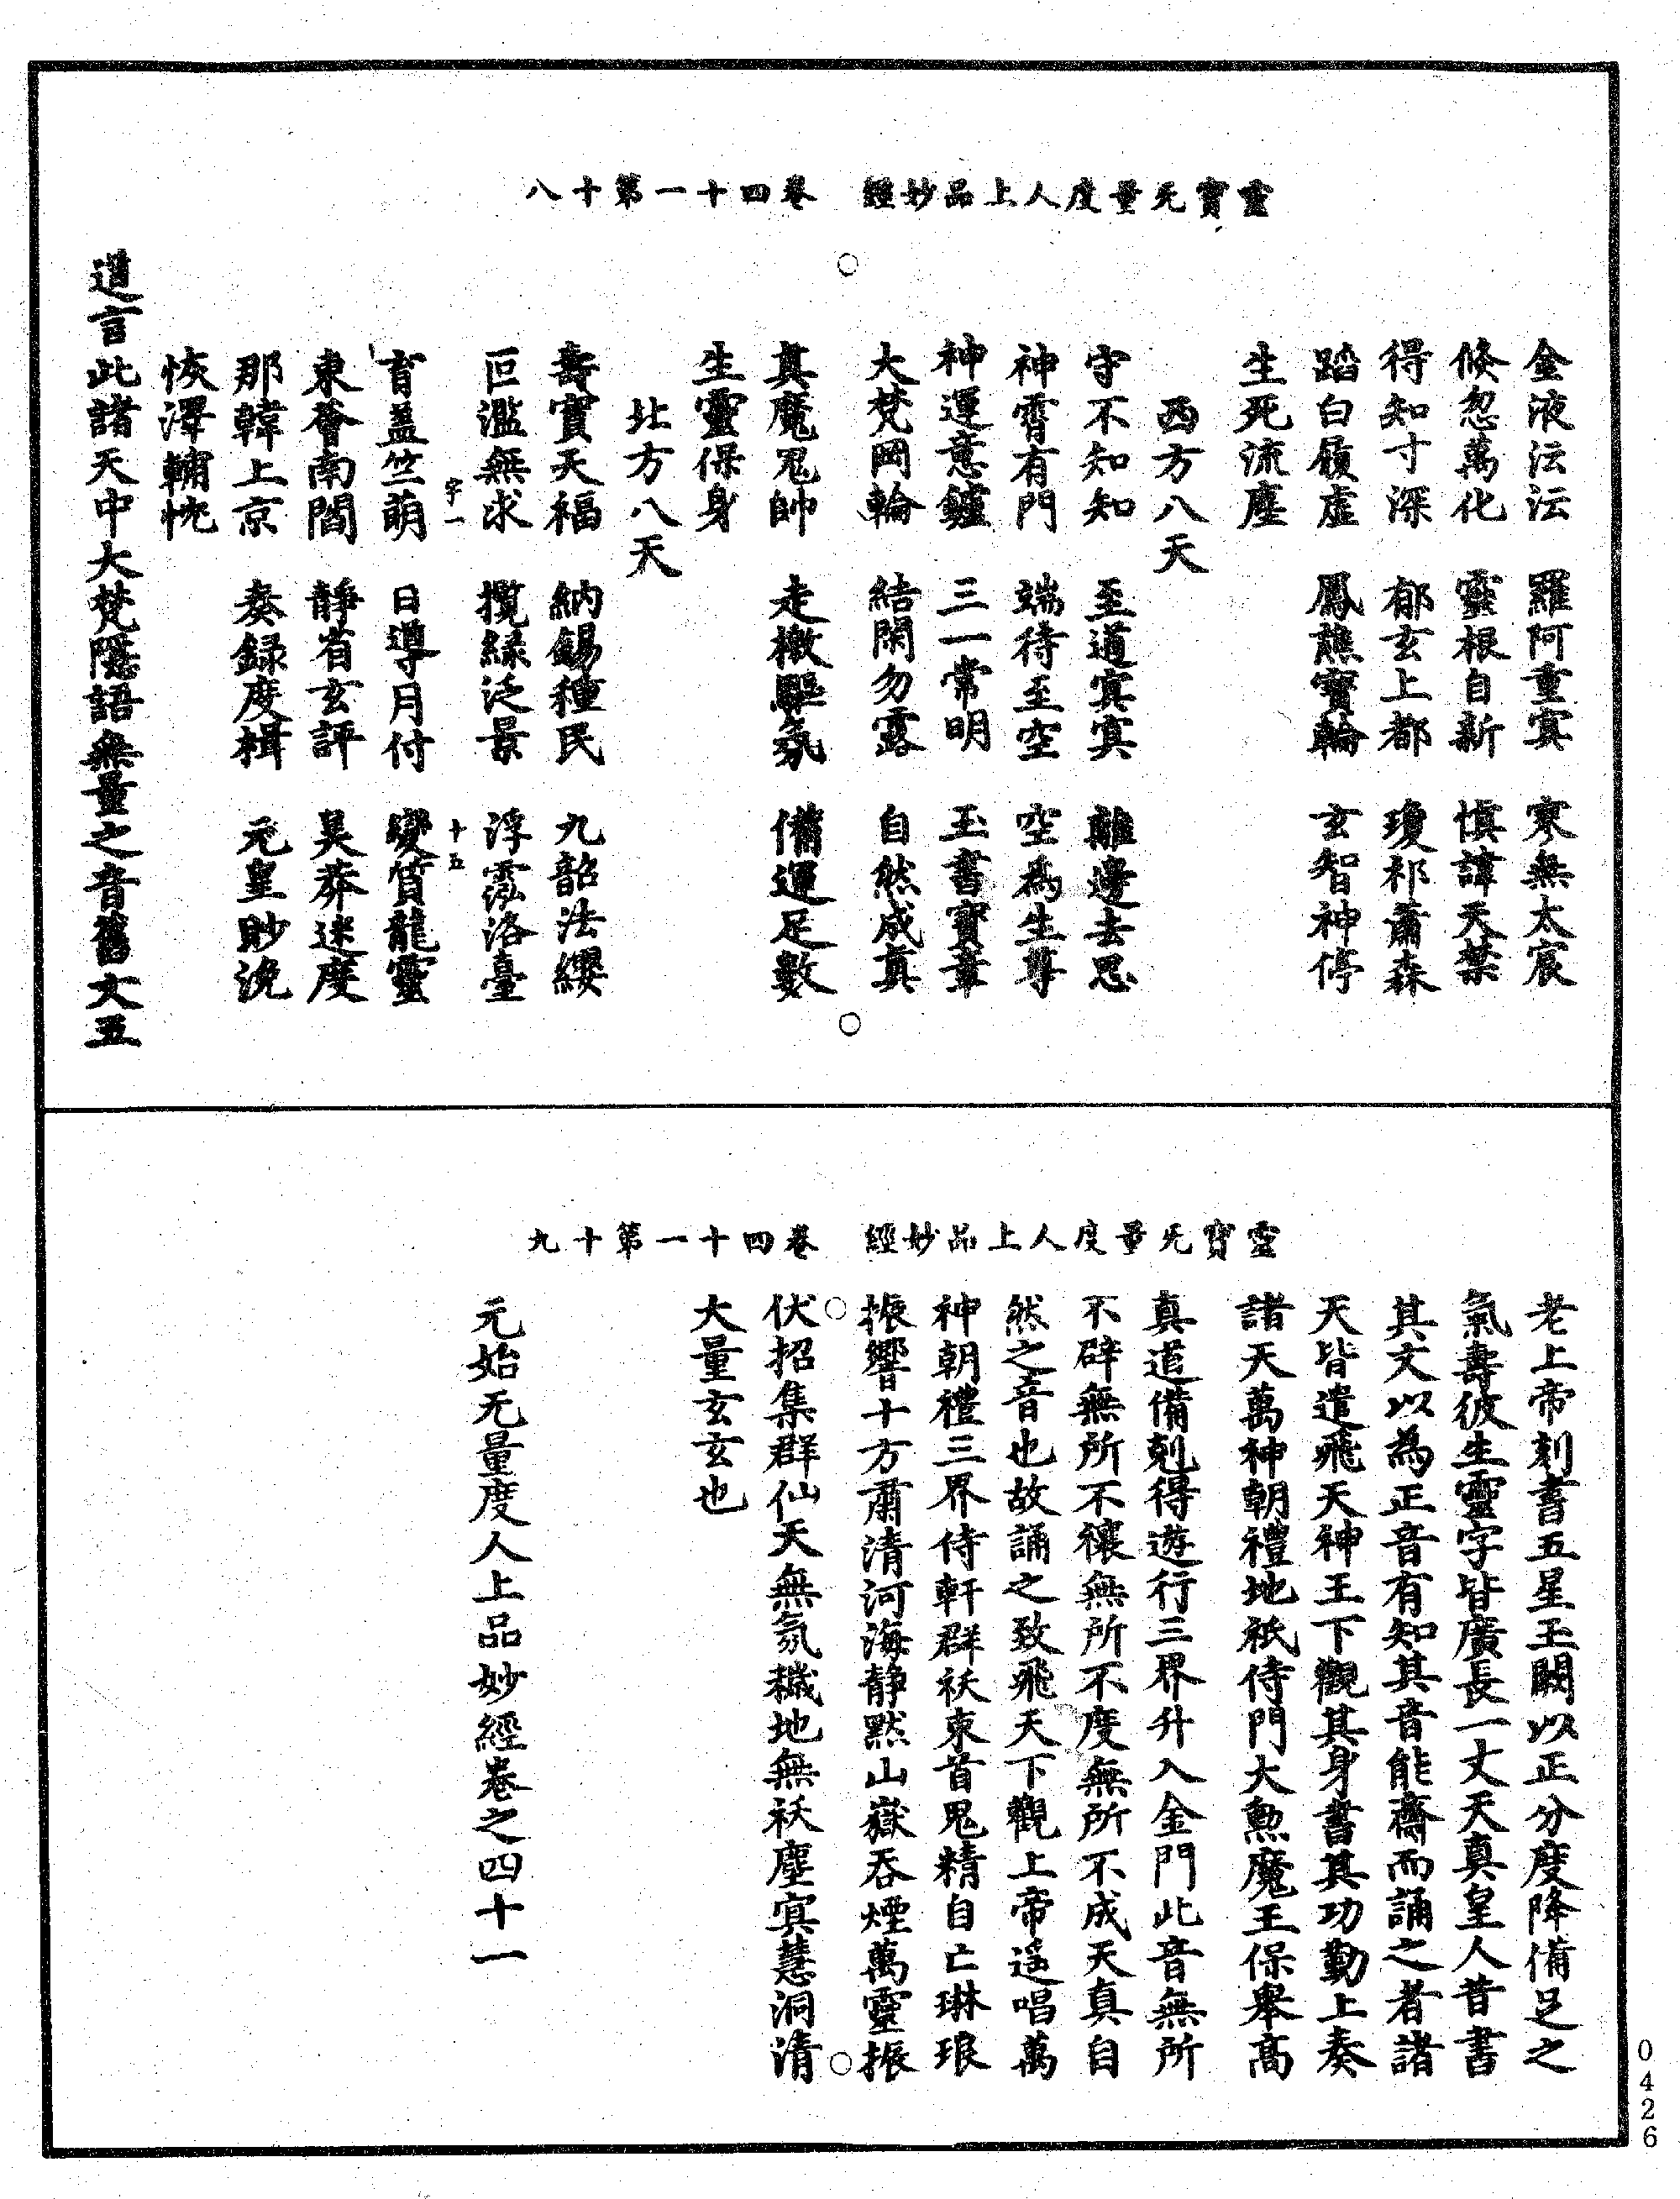 靈寶无量度人上品妙經　卷四十一第十八
金液沄沄　羅阿重寘　寒無太宸
倏忽萬化　靈根自新　慎諱天禁
得知寸深　郁玄上都　瓊祁蕭森
踏白履虛　鳳醮寶輪　玄智神停
生死流塵
西方八天
守不知知　至道寘寘　離邊去思
神霄有門　端待至空　空為生尊
神運意鑪　三一常明　玉書寶章
大梵岡輪　結閑勿露　自然成真
真魔鬼帥　走檄驅氛　備運足數
生靈保身
北方八天
壽寶天福　納錫種民　九韶法纓
巨濫無求　攬緑泛景　浮霐洛臺
字一　十五
育盖竺萌　日導月付　變質龍靈
東薈南閻　靜省玄評　昊莽迷度
那韓上京　奏録度楫　元皇眇浼
恢澤輔忱
道言此諸天中大梵隱語無量之音舊文五
靈寶无量度人上品妙經　卷四十一第十九
老上帝刻書五星玉闕以正分度降備足之
氣壽彼生靈字皆廣長一丈天真皇人昔書
其文以為正音有知其音能齋而誦之者諸
天皆遣飛天神王下觀其身書其功勤上奏
諸天萬神朝禮地祇侍門大勲魔王保舉高
真道備剋得遊行三界升入金門此音無所
不辟無所不禳無所不度無所不成天真自
然之音也故誦之致飛天下觀上帝遥唱萬
神朝禮三界侍軒群袄束首鬼精自亡琳琅
振響十方肅清河海靜默山嶽吞煙萬靈振
伏招集群仙天無氛穢地無袄塵寘慧洞清
大量玄玄也
元始无量度人上品妙經卷之四十一
0426